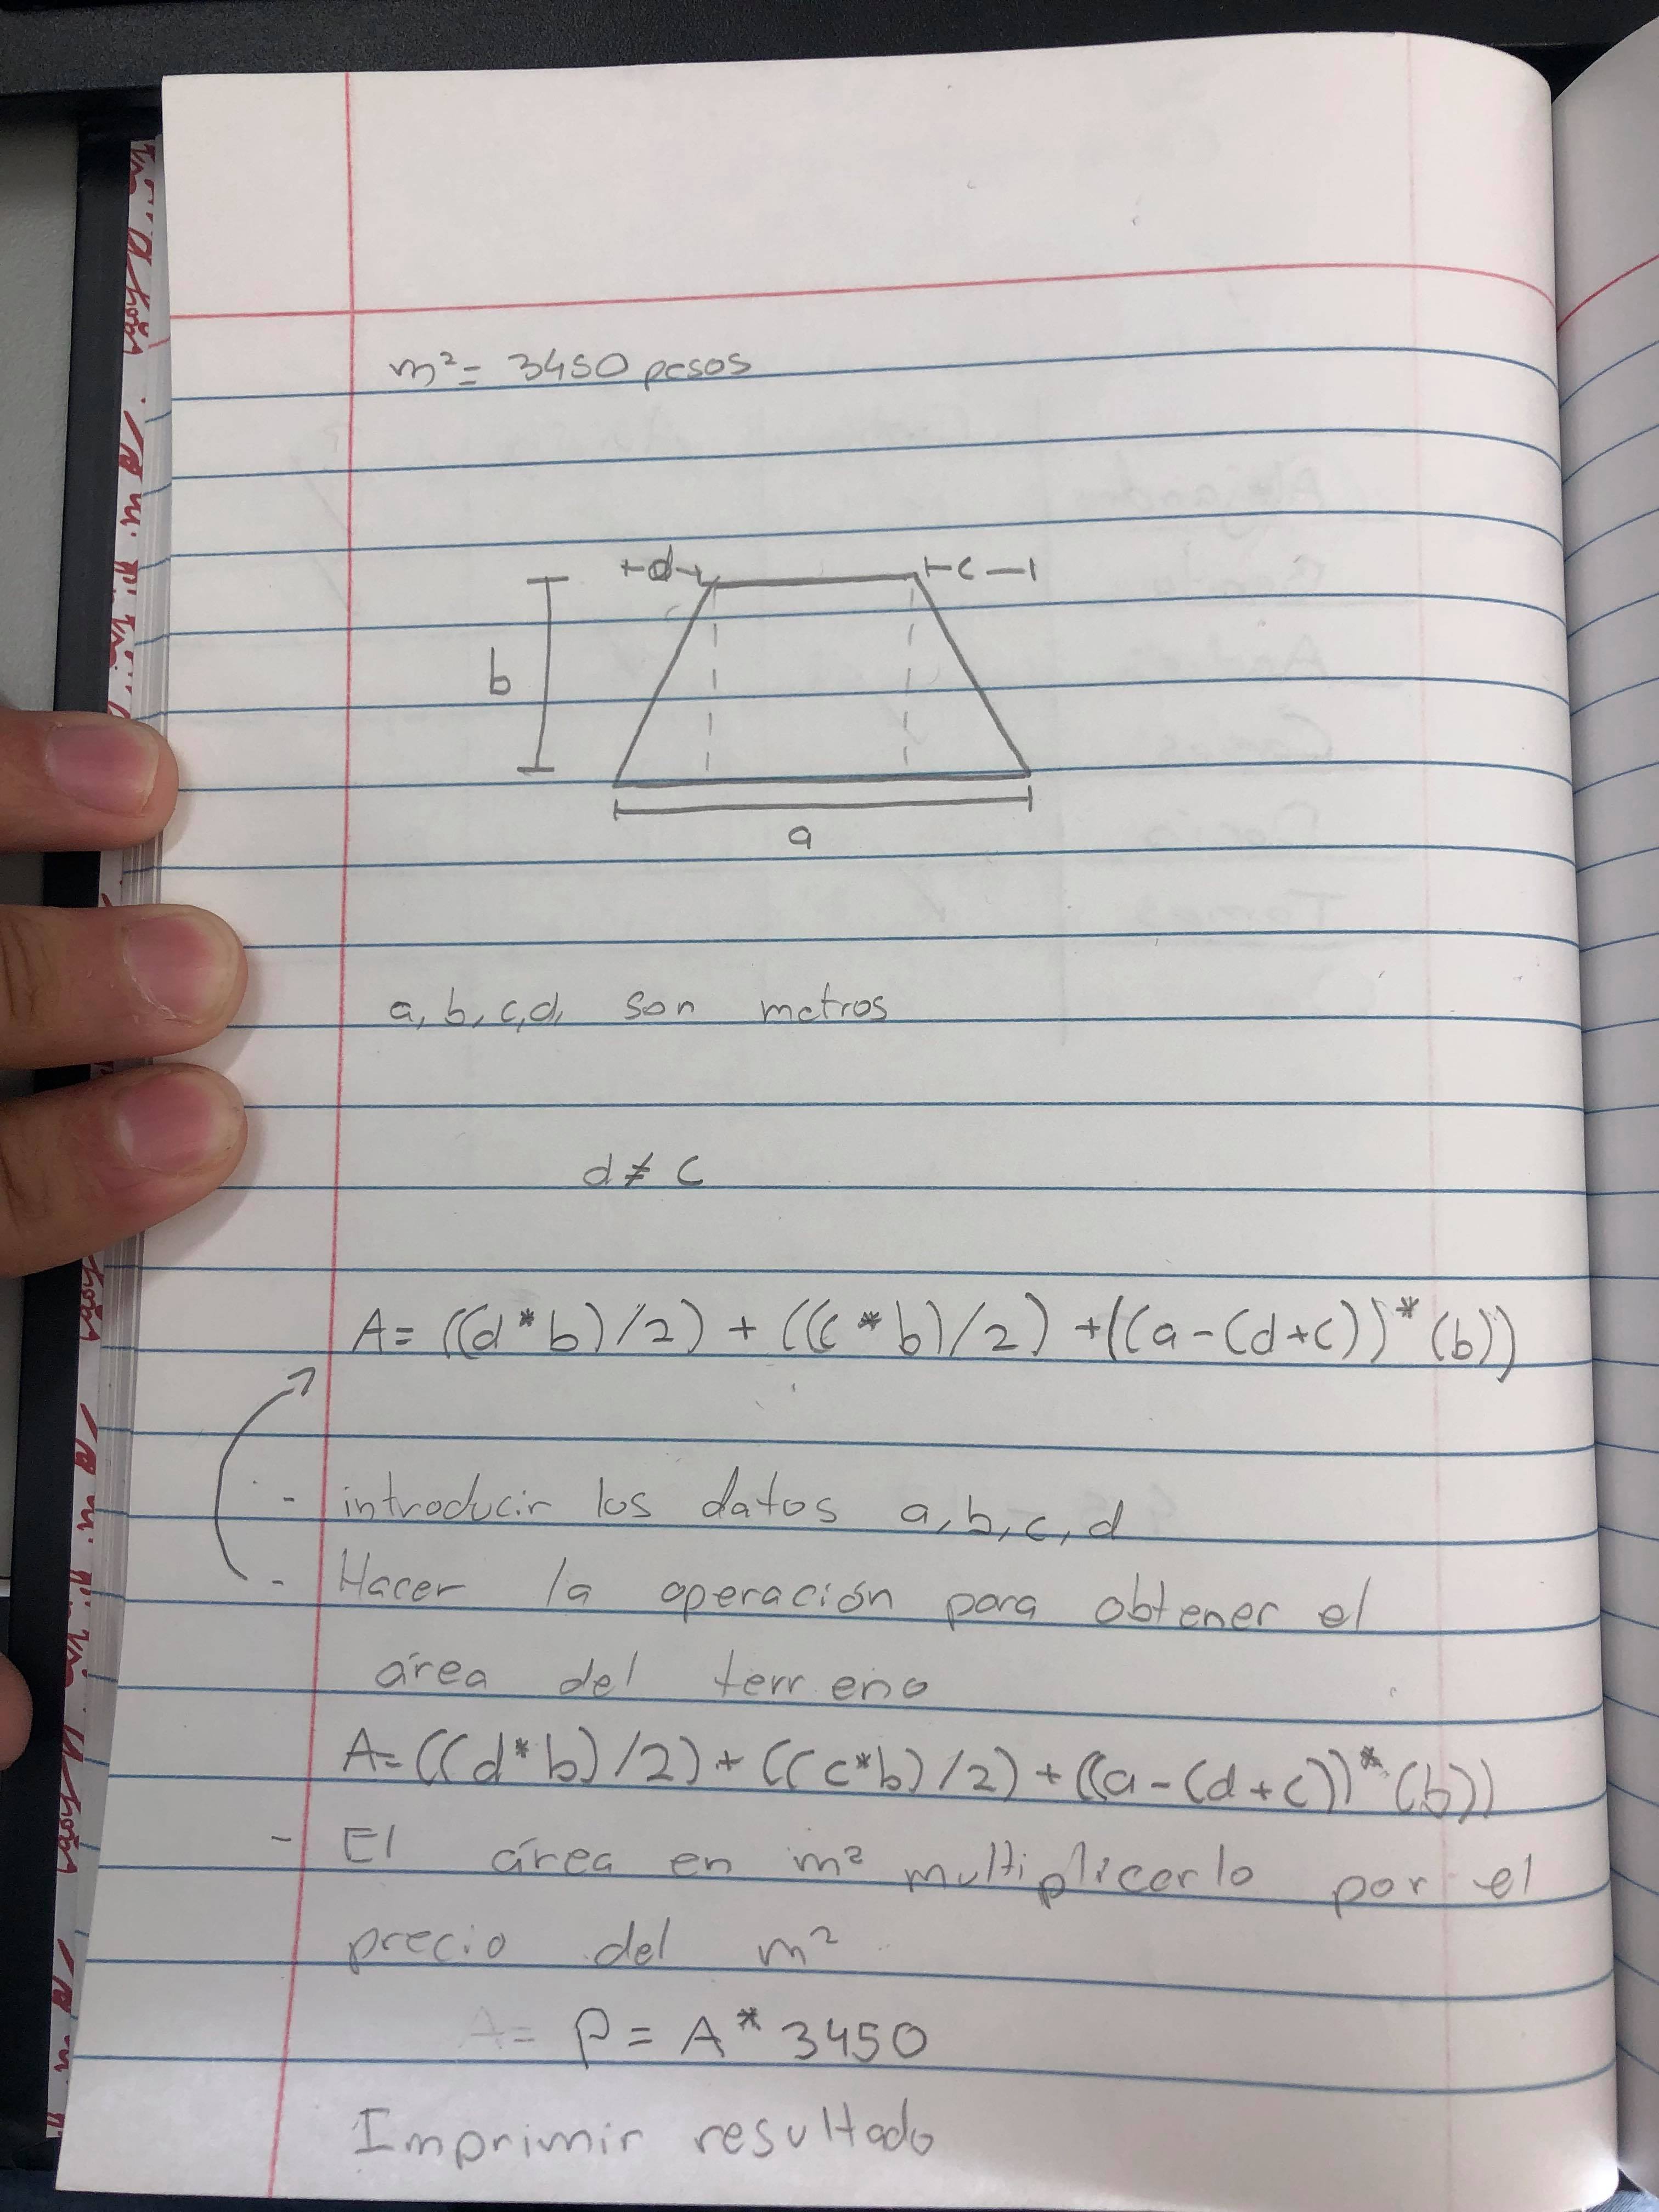 m² = 3450 pesos
d c
b
a
a, b, c, d, son metros
d ≠ c
A= ((d*b)/2) + ((c*b)/2) + ((a-(d+c))*(b))
- introducir los datos a, b, c, d
- Hacer la operación para obtener el
área del terreno
A=((d*b)/2)+((c*b)/2)+((a-(d+c))*(b))
- El área en m² multiplicarlo por el
precio del m²
A= P = A*3450
Imprimir resultado